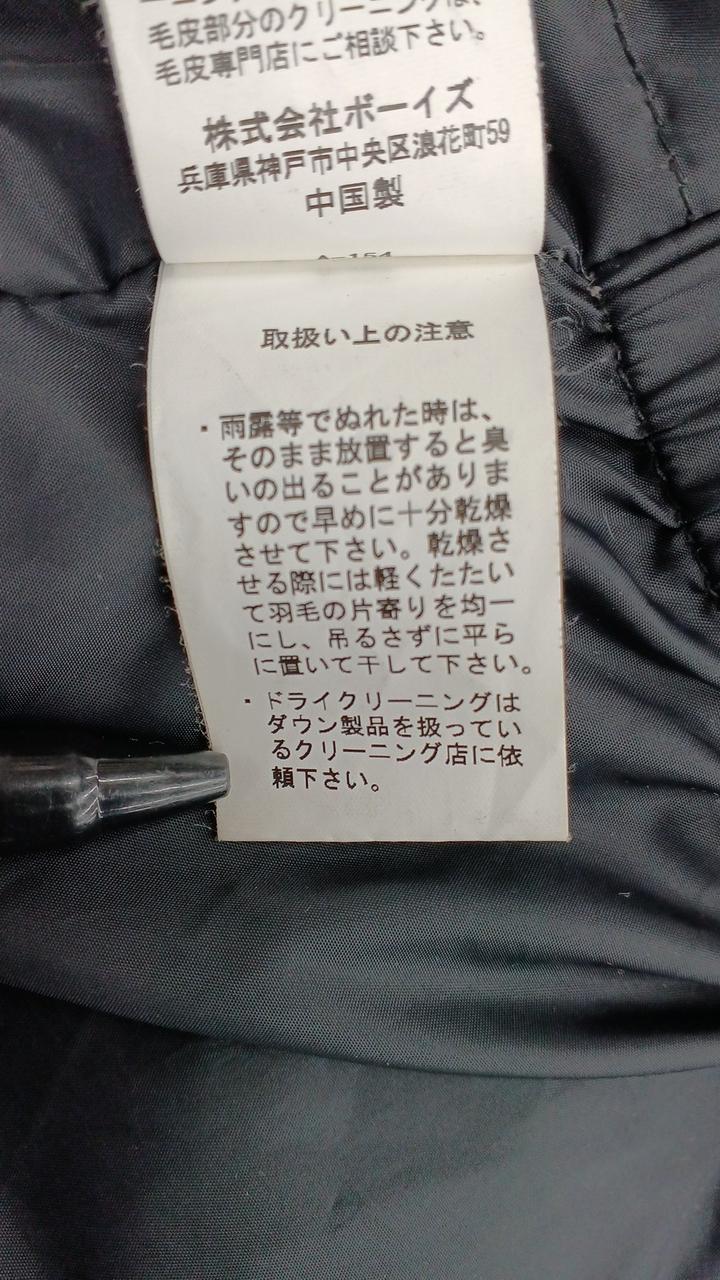 毛皮部分のクリーニングは、
毛皮専門店にご相談下さい。
株式会社ボーイズ
兵庫県神戸市中央区浪花町59
中国製
取扱い上の注意
・雨露等でぬれた時は、
そのまま放置すると臭
いの出ることがありま
すので早めに十分乾燥
させて下さい。乾燥さ
せる際には軽くたたい
て羽毛の片寄りを均一
にし、吊るさずに平ら
に置いて干して下さい。
・ドライクリーニングは
ダウン製品を扱ってい
るクリーニング店に依
頼下さい。